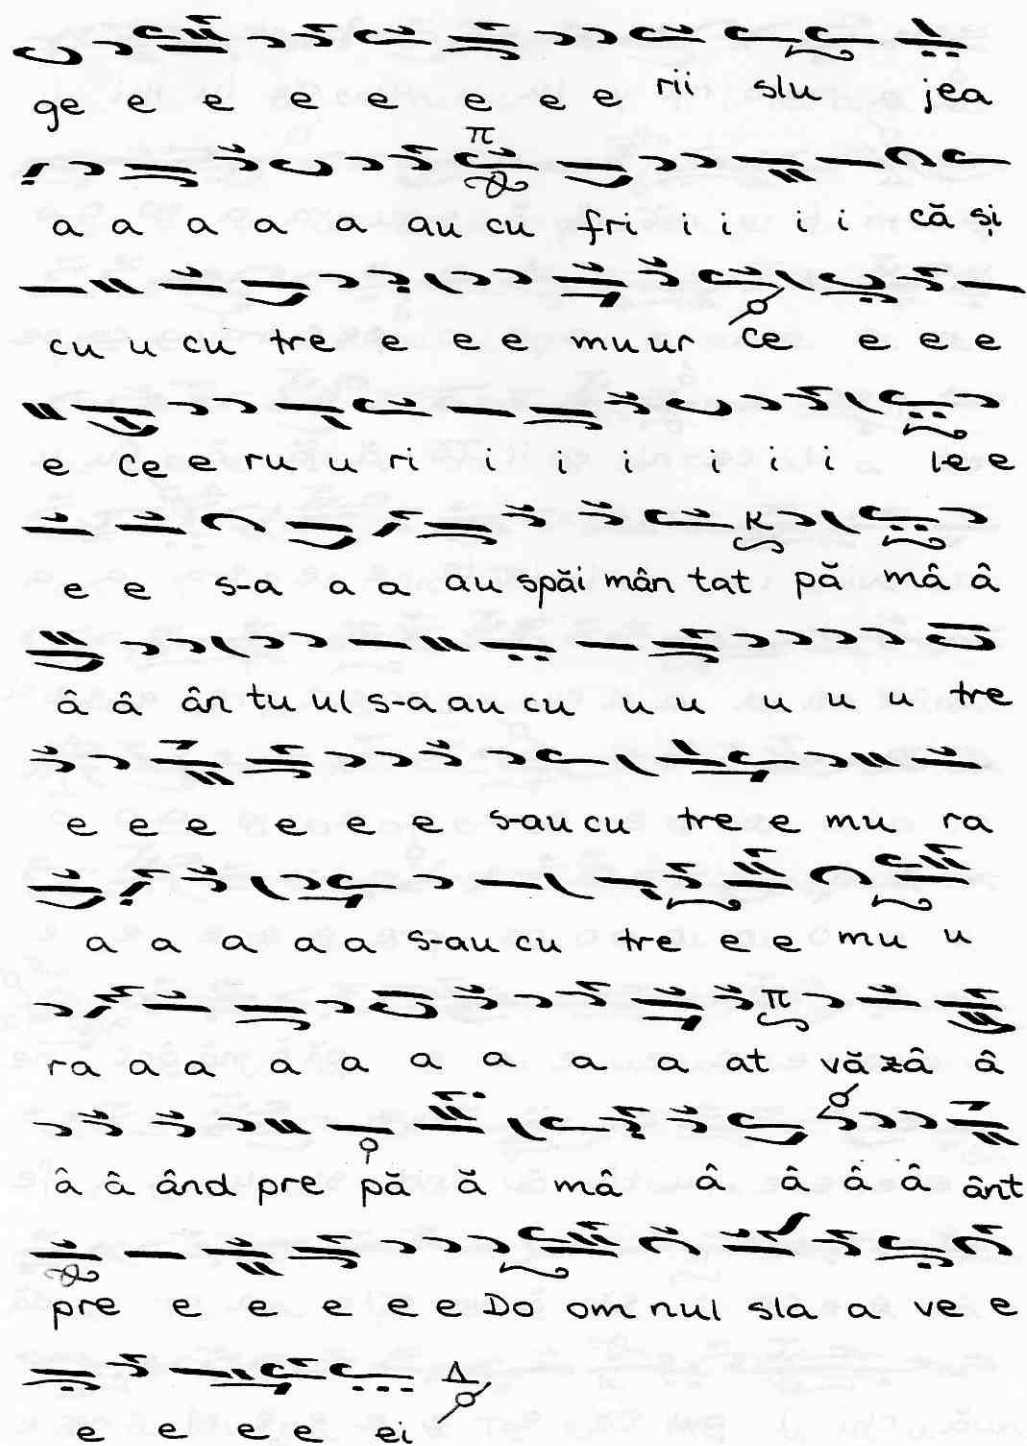 ge e e e e e e e rii slu jea
π
a a a a a au cu fri i i i i că și
cu u cu tre e e e mu ur Ce e e e
e Ce e ru u ri i i i i i i le e
e e s-a a a au spăi mân tat pă mâ â
â â ân tu ul s-a au cu u u u u u tre
e e e e e e s-au cu tre e mu ra
a a a a a s-au cu tre e e mu u
π
ra a a a a a a a at vă zâ â
â â ând pre pă ă mâ â â â â ânt
pre e e e e e Do om nul sla a ve e
Δ
e e e e ei